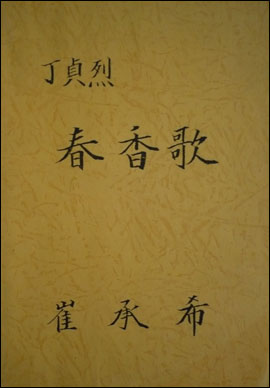 丁貞烈
春香歌
崔承希